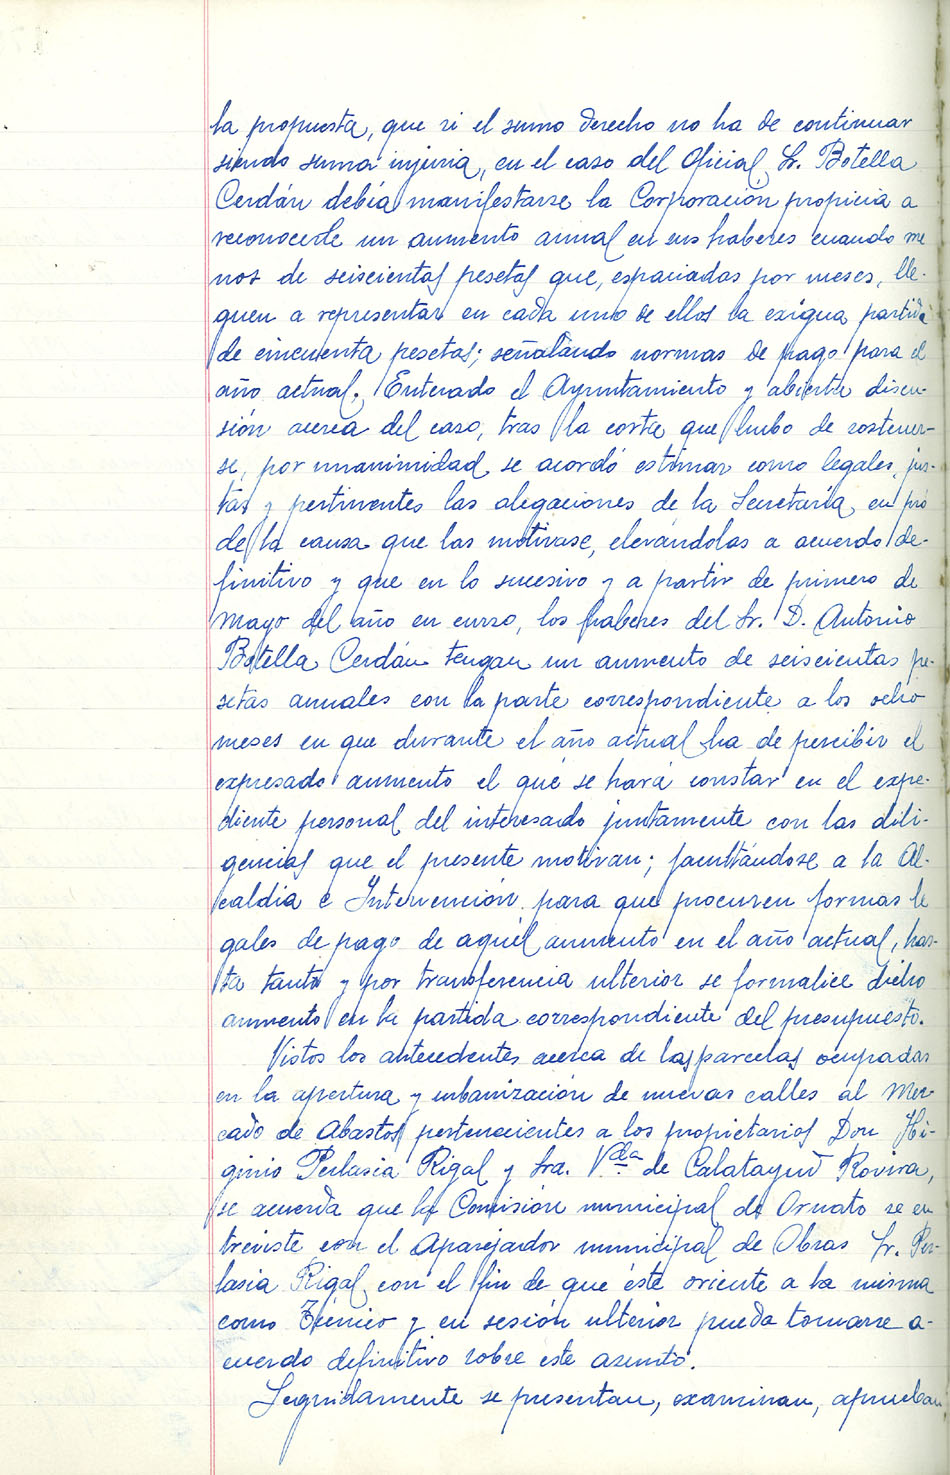 la propuesta, que si el sumo derecho no ha de continuar
siendo suma injuria, en el caso del Oficial Sr. Botella
Cerdán debía manifestarse la Corporación propicia a
reconocerle un aumento anual en sus haberes cuando me
nos de seiscientas pesetas que, espaciadas por meses, lle-
guen a representar en cada uno de ellos la exigua partida
de cincuenta pesetas; señalando normas de pago para el
año actual. Enterado el Ayuntamiento y abierta discu-
sión acerca del caso, tras la corta que hubo de sostener-
se, por unanimidad se acordó estimar como legales, jus-
tas y pertinentes las alegaciones de la Secretaría, en pró
de la causa que las motivase, elevándolas a acuerdo de-
finitivo y que en lo sucesivo y a partir de primero de
Mayo del año en curso, los haberes del Sr. D. Antonio
Botella Cerdán tengan un aumento de seiscientas pe-
setas anuales con la parte correspondiente a los ocho
meses en que durante el año actual ha de percibir el
expresado aumento el que se hará constar en el expe-
diente personal del interesado juntamente con las dili-
gencias que el presente motivan; facultándose a la Al-
caldía e Intervención para que procuren formas le
gales de pago de aquél aumento en el año actual, has-
ta tanto y por transferencia ulterior se formalice dicho
aumento en la partida correspondiente del presupuesto.
Vistos los antecedentes acerca de las parcelas ocupadas
en la apertura y urbanización de nuevas calles al Mer-
cado de Abastos pertenecientes a los propietarios Don Hi-
ginio Perlasia Rigal y Sra. Vda de Calatayud Rovira,
se acuerda que la Comisión municipal de Ornato se en
treviste con el Aparejador municipal de Obras Sr. Per-
lasia Rigal con el fin de que éste oriente a la misma
como Técnico y en sesión ulterior pueda tomarse a-
cuerdo definitivo sobre este asunto.
Seguidamente se presentan, examinan, aprueban